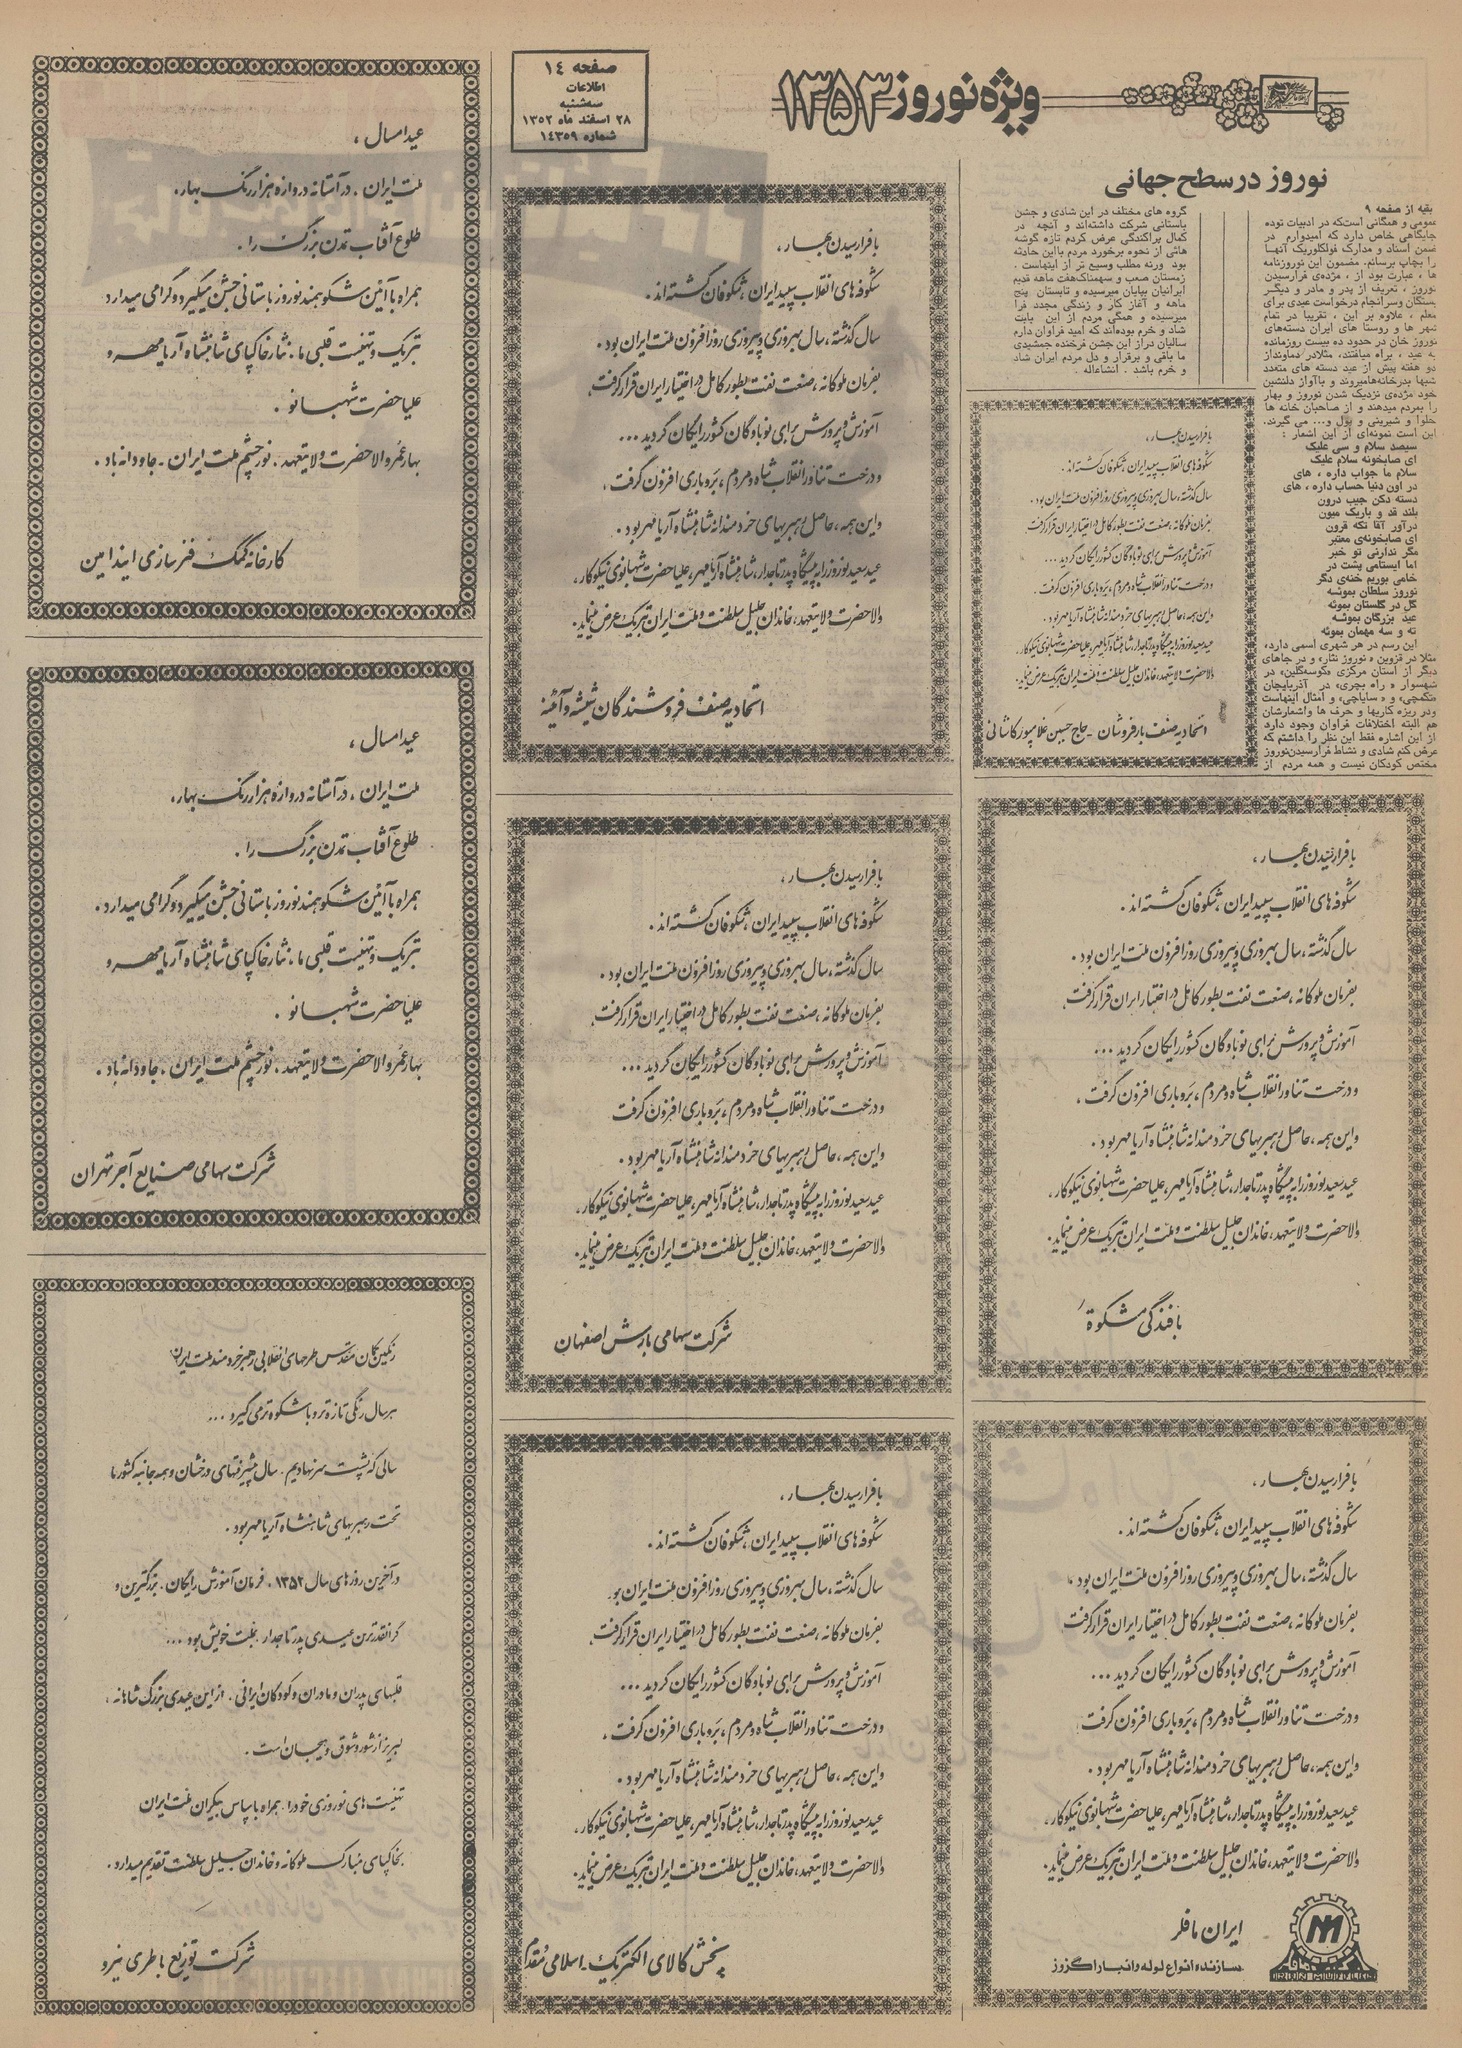 ویژه نوروز ۱۳۵۳
صفحه ۱۴
اطلاعات
سه‌شنبه
۲۸ اسفند ماه ۱۳۵۲
شماره ۱۴۳۵۹
نوروز در سطح جهانی
بقیه از صفحه ۹
عمومی و همگانی است‌که در ادبیات توده
جایگاهی خاص دارد که امیدوارم در
ضمن اسناد و مدارک فولکلوریک آنها
را بچاپ برسانم. مضمون این نوروزنامه
ها ، عبارت بود از ، مژده‌ی فرارسیدن
نوروز ، تعریف از پدر و مادر و دیگر
بستگان وسرانجام درخواست عیدی برای
معلم . علاوه بر این ، تقریبا در تمام
شهر ها و روستا های ایران دسته‌های
نوروز خان در حدود ده بیست روزمانده
به عید ، براه میافتند، مثلادر دماونداز
دو هفته پیش از عید دسته های متعدد
شبها بدرخانه‌هامیروند و باآواز دلنشین
خود مژده‌ی نزدیک شدن نوروز و بهار
را بمردم میدهند و از صاحبان خانه ها
حلوا و شیرینی و پول و... می گیرند.
این است نمونه‌ای از این اشعار :
سیصد سلام و سی علیک
ای صابخونه سلام علیک
سلام ما جواب داره ، های
در اون دنیا حساب داره ، های
دسته دکن جیب درون
بلند قد و باریک میون
درآور آقا تکه قرون
ای صابخونه‌ی معتبر
مگر ندارنی تو خبر
اما ایستامی پشت در
خامی بوریم خنه‌ی دگر
نوروز سلطان بموئه
گل در گلستان بموئه
عید بزرگان بموئه
ته و سه مهمان بموئه
این رسم در هر شهری اسمی دارد،
مثلا در قزوین « نوروز نثار» و در جاهای
دیگر از استان مرکزی «کوسه‌گلین» در
شهسوار « راه بچری» در آذربایجان
«تکمچی» و « سایاچی» و امثال اینهاست
ودر ریزه کاریها و حرف ها واشعارشان
هم البته اختلافات فراوان وجود دارد
از این اشاره فقط این نظر را داشتم که
عرض کنم شادی و نشاط فرارسیدن‌نوروز
مختص کودکان نیست و همه مردم از
گروه های مختلف در این شادی و جشن
باستانی شرکت داشته‌اند و آنچه در
کمال پراکندگی عرض کردم تازه گوشه
هائی از نحوه برخورد مردم بااین حادثه
بود ورنه مطلب وسیع تر از اینهاست .
زمستان صعب و سهمناک‌هفت ماهه قدیم
ایرانیان بپایان میرسیده و تابستان پنج
ماهه و آغاز کار و زندگی مجدد فرا
میرسیده و همگی مردم از این بابت
شاد و خرم بوده‌اند که امید فراوان دارم
سالیان دراز این جشن فرخنده جمشیدی
ما باقی و برقرار و دل مردم ایران شاد
و خرم باشد . انشاءاله .
با فرارسیدن بهار ،
شکوفه‌های انقلاب سپید ایران ، شکوفان گشته‌اند .
سال گذشته ، سال بهروزی و پیروزی روزافزون ملت ایران بود .
بفرمان ملوکانه ، صنعت نفت بطور کامل در اختیار ایران قرار گرفت.
آموزش و پرورش برای نوباوگان کشور رایگان گردید ...
و درخت تناور انقلاب شاه و مردم ، بر و باری افزون گرفت .
و این همه ، حاصل رهبریهای خردمندانه شاهنشاه آریامهر بود .
عید سعید نوروز را به پیشگاه پدر تاجدار، شاهنشاه آریامهر، علیا حضرت شهبانوی نیکوکار ،
والاحضرت ولایتعهد، خاندان جلیل سلطنت و ملت ایران تبریک عرض مینماید .
اتحادیه صنف بارفروشان - حاج حسین غلامپور کاشانی
با فرارسیدن بهار ،
شکوفه‌های انقلاب سپید ایران ، شکوفان گشته‌اند .
سال گذشته ، سال بهروزی و پیروزی روزافزون ملت ایران بود .
بفرمان ملوکانه ، صنعت نفت بطور کامل در اختیار ایران قرار گرفت.
آموزش و پرورش برای نوباوگان کشور رایگان گردید ...
و درخت تناور انقلاب شاه و مردم ، بر و باری افزون گرفت .
و این همه ، حاصل رهبریهای خردمندانه شاهنشاه آریامهر بود .
عید سعید نوروز را به پیشگاه پدر تاجدار، شاهنشاه آریامهر، علیا حضرت شهبانوی نیکوکار ،
والاحضرت ولایتعهد، خاندان جلیل سلطنت و ملت ایران تبریک عرض مینماید .
بافندگی مشکوة
با فرارسیدن بهار ،
شکوفه‌های انقلاب سپید ایران ، شکوفان گشته‌اند .
سال گذشته ، سال بهروزی و پیروزی روزافزون ملت ایران بود .
بفرمان ملوکانه ، صنعت نفت بطور کامل در اختیار ایران قرار گرفت
آموزش و پرورش برای نوباوگان کشور رایگان گردید ...
و درخت تناور انقلاب شاه و مردم ، بر و باری افزون گرفت .
و این همه ، حاصل رهبریهای خردمندانه شاهنشاه آریامهر بود .
عید سعید نوروز را به پیشگاه پدر تاجدار، شاهنشاه آریامهر، علیا حضرت شهبانوی نیکوکار ،
والاحضرت ولایتعهد، خاندان جلیل سلطنت و ملت ایران تبریک عرض مینماید .
ایران مافلر
سازنده انواع لوله و انبار اگزوز
با فرارسیدن بهار ،
شکوفه‌های انقلاب سپید ایران ، شکوفان گشته‌اند .
سال گذشته ، سال بهروزی و پیروزی روزافزون ملت ایران بود .
بفرمان ملوکانه ، صنعت نفت بطور کامل در اختیار ایران قرار گرفت.
آموزش و پرورش برای نوباوگان کشور رایگان گردید ...
و درخت تناور انقلاب شاه و مردم ، بر و باری افزون گرفت .
و این همه ، حاصل رهبریهای خردمندانه شاهنشاه آریامهر بود .
عید سعید نوروز را به پیشگاه پدر تاجدار، شاهنشاه آریامهر، علیا حضرت شهبانوی نیکوکار ،
والاحضرت ولایتعهد، خاندان جلیل سلطنت و ملت ایران تبریک عرض مینماید .
اتحادیه صنف فروشندگان شیشه و آئینه
با فرارسیدن بهار ،
شکوفه‌های انقلاب سپید ایران ، شکوفان گشته‌اند .
سال گذشته ، سال بهروزی و پیروزی روزافزون ملت ایران بود .
بفرمان ملوکانه ، صنعت نفت بطور کامل در اختیار ایران قرار گرفت.
آموزش و پرورش برای نوباوگان کشور رایگان گردید ...
و درخت تناور انقلاب شاه و مردم ، بر و باری افزون گرفت
و این همه ، حاصل رهبریهای خردمندانه شاهنشاه آریامهر بود .
عید سعید نوروز را به پیشگاه پدر تاجدار، شاهنشاه آریامهر، علیا حضرت شهبانوی نیکوکار ،
والاحضرت ولایتعهد، خاندان جلیل سلطنت و ملت ایران تبریک عرض مینماید .
شرکت سهامی بارش اصفهان
با فرارسیدن بهار ،
شکوفه‌های انقلاب سپید ایران ، شکوفان گشته‌اند .
سال گذشته ، سال بهروزی و پیروزی روزافزون ملت ایران بود
بفرمان ملوکانه ، صنعت نفت بطور کامل در اختیار ایران قرار گرفت.
آموزش و پرورش برای نوباوگان کشور رایگان گردید ...
و درخت تناور انقلاب شاه و مردم ، بر و باری افزون گرفت .
و این همه ، حاصل رهبریهای خردمندانه شاهنشاه آریامهر بود .
عید سعید نوروز را به پیشگاه پدر تاجدار، شاهنشاه آریامهر، علیا حضرت شهبانوی نیکوکار ،
والاحضرت ولایتعهد، خاندان جلیل سلطنت و ملت ایران تبریک عرض مینماید .
پخش کالای الکتریک - اسلامی مقدم
عید امسال ،
ملت ایران ، در آستانه دروازه هزار رنگ بهار ،
طلوع آفتاب تمدن بزرگ را ،
همراه با آئین شکوهمند نوروز باستانی جشن میگیرد و گرامی میدارد
تبریک و تهنیت قلبی ما ، نثار خاکپای شاهنشاه آریامهر و
علیا حضرت شهبانو .
بهار عمر والاحضرت ولایتعهد ، نور چشم ملت ایران - جاودانه باد .
کارخانه کمک فنرسازی ایندامین
عید امسال ،
ملت ایران ، در آستانه دروازه هزار رنگ بهار ،
طلوع آفتاب تمدن بزرگ را ،
همراه با آئین شکوهمند نوروز باستانی جشن میگیرد و گرامی میدارد .
تبریک و تهنیت قلبی ما ، نثار خاکپای شاهنشاه آریامهر و
علیا حضرت شهبانو .
بهار عمر والاحضرت ولایتعهد ، نور چشم ملت ایران ، جاودانه باد .
شرکت سهامی صنایع آجر تهران
رنگین‌کمان مقدس طرحهای انقلابی رهبر خردمند ملت ایران
هر سال رنگی تازه‌تر و باشکوه‌تر می گیرد ...
سالی که پشت سر نهادیم ، سال پیشرفتهای درخشان و همه جانبه کشور ما
تحت رهبریهای شاهنشاه آریامهر بود .
در آخرین روزهای سال ۱۳۵۲ ، فرمان آموزش رایگان ، بزرگترین و
گرانقدرترین عیدی پدر تاجدار ، بملت خویش بود ...
قلبهای پدران و مادران و کودکان ایرانی ، از این عیدی بزرگ شاهانه ،
لبریز از شور و شوق و هیجان است .
تهنیت های نوروزی خود را ، همراه با سپاس بیکران ملت ایران
بخاکپای مبارک ملوکانه و خاندان جلیل سلطنت تقدیم میدارد .
شرکت توزیع باطری نیرو